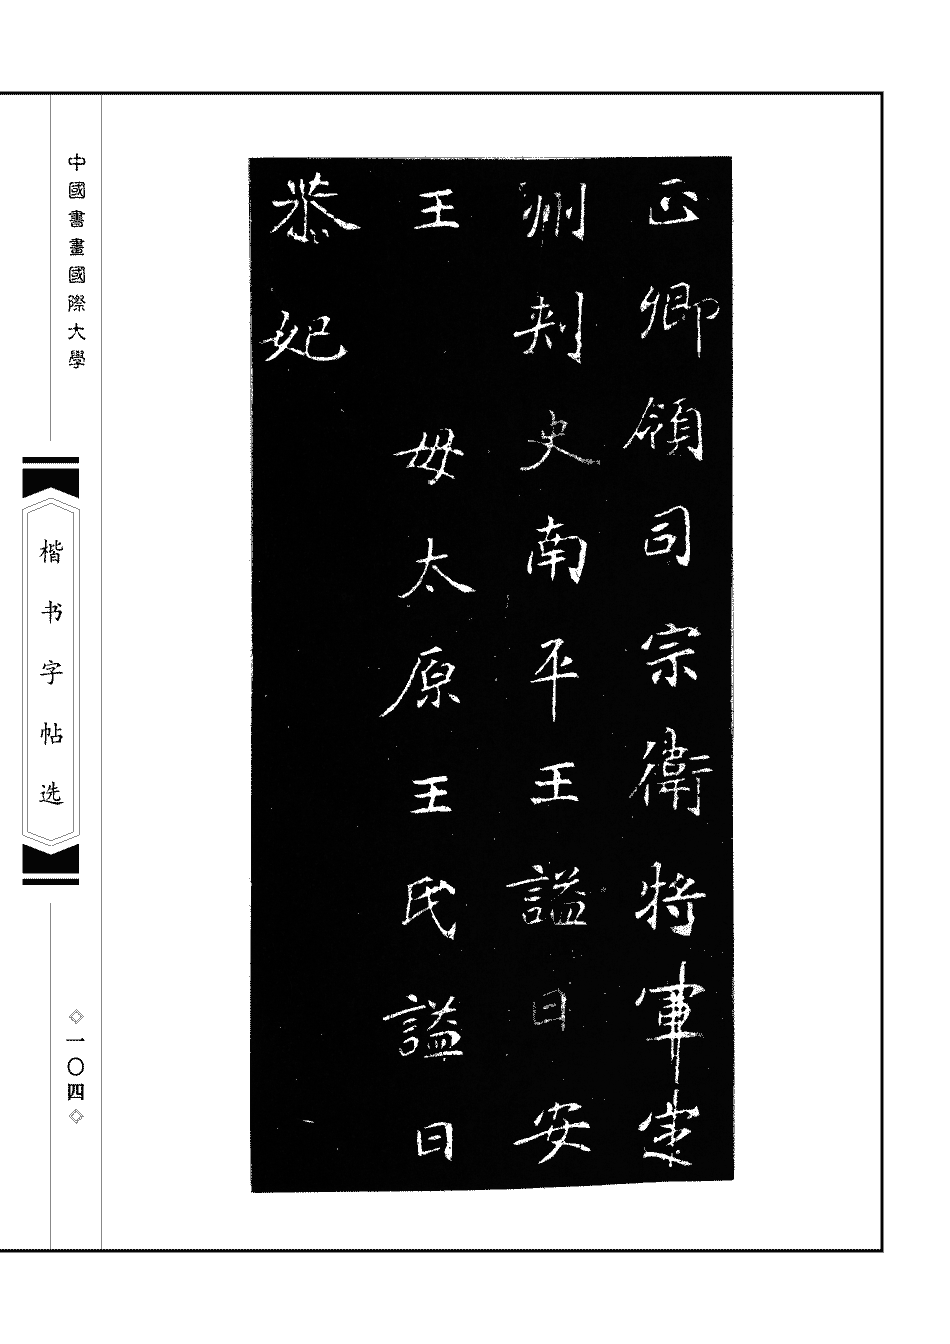 正卿領司宗衛將軍定
州刺史南平王謚曰安
王　母太原王氏謚曰
恭妃
中國書畫國際大學
楷书字帖选
一〇四